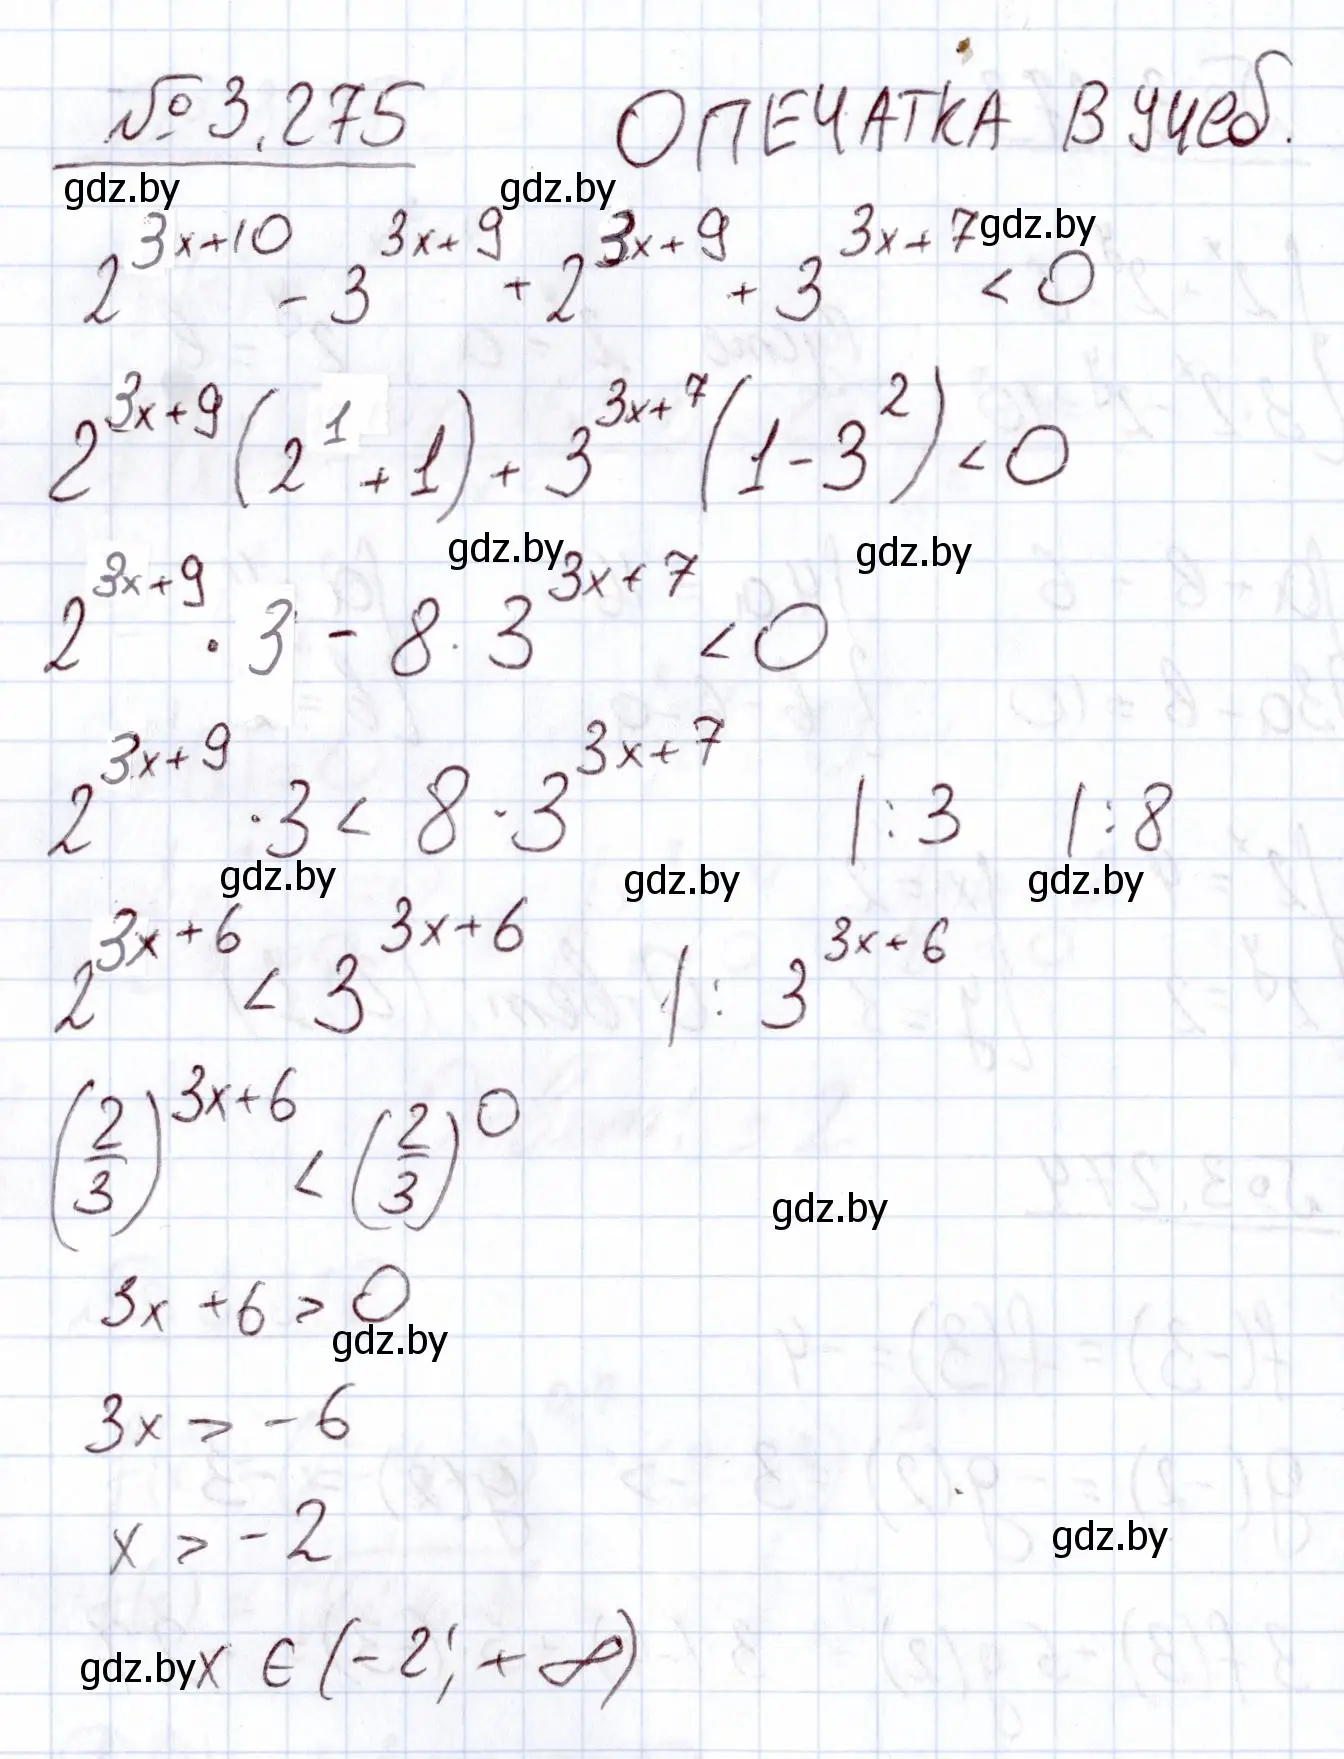 № 3.275 ОПЕЧАТКА В учеб.
gdz.by gdz.by
2^{3x+10} - 3^{3x+9} + 2^{3x+9} + 3^{3x+7} < 0 gdz.by
2^{3x+9} (2^1 + 1) + 3^{3x+7} (1 - 3^2) < 0
gdz.by gdz.by
2^{3x+9} · 3 - 8 · 3^{3x+7} < 0
2^{3x+9} · 3 < 8 · 3^{3x+7} | : 3 | : 8
gdz.by gdz.by gdz.by
2^{3x+6} < 3^{3x+6} | : 3^{3x+6}
(2/3)^{3x+6} < (2/3)^0
gdz.by
3x + 6 > 0
gdz.by
3x > -6
x > -2
gdz.by
gdz.by x ∈ (-2; +∞)